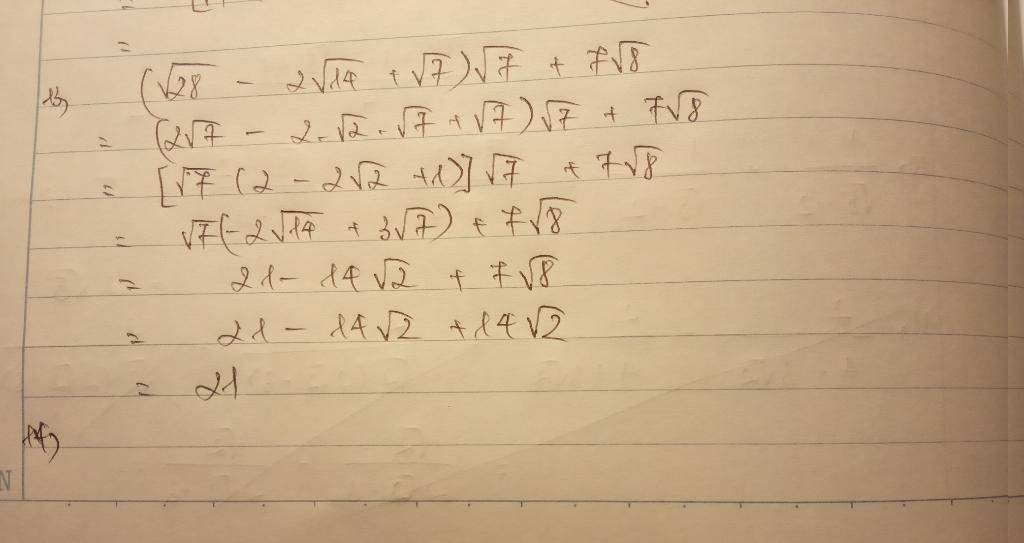 =
13) (√28 - 2√14 + √7)√7 + 7√8
= (2√7 - 2.√2.√7 + √7)√7 + 7√8
= [√7 (2 - 2√2 + 1)]√7 + 7√8
= √7(-2√14 + 3√7) + 7√8
= 21 - 14√2 + 7√8
= 21 - 14√2 + 14√2
= 21
14)
N